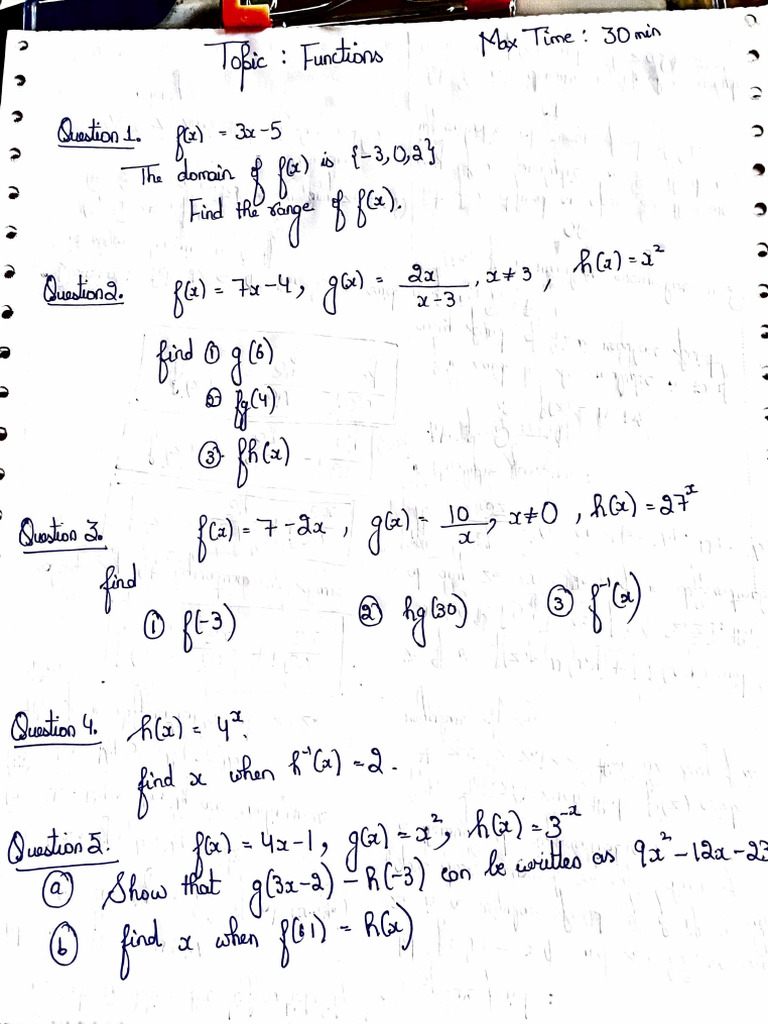 Topic : Functions
Max Time : 30 min
Question 1. f(x) = 3x-5
The domain of f(x) is {-3, 0, 2}
Find the range of f(x).
Question 2. f(x) = 7x-4, g(x) = 2x/x-3, x≠3, h(x) = x²
find ① g(6)
② fg(4)
③ fh(x)
Question 3. f(x) = 7-2x, g(x) = 10/x, x≠0, h(x) = 27ˣ
find
① f(-3) ② hg(30) ③ f⁻¹(x)
Question 4. h(x) = 4ˣ.
find x when h⁻¹(x) = 2.
Question 5. f(x) = 4x-1, g(x) = x², h(x) = 3⁻ˣ
ⓐ Show that g(3x-2) - h(-3) can be written as 9x²-12x-23
ⓑ find x when f(61) = h(x)